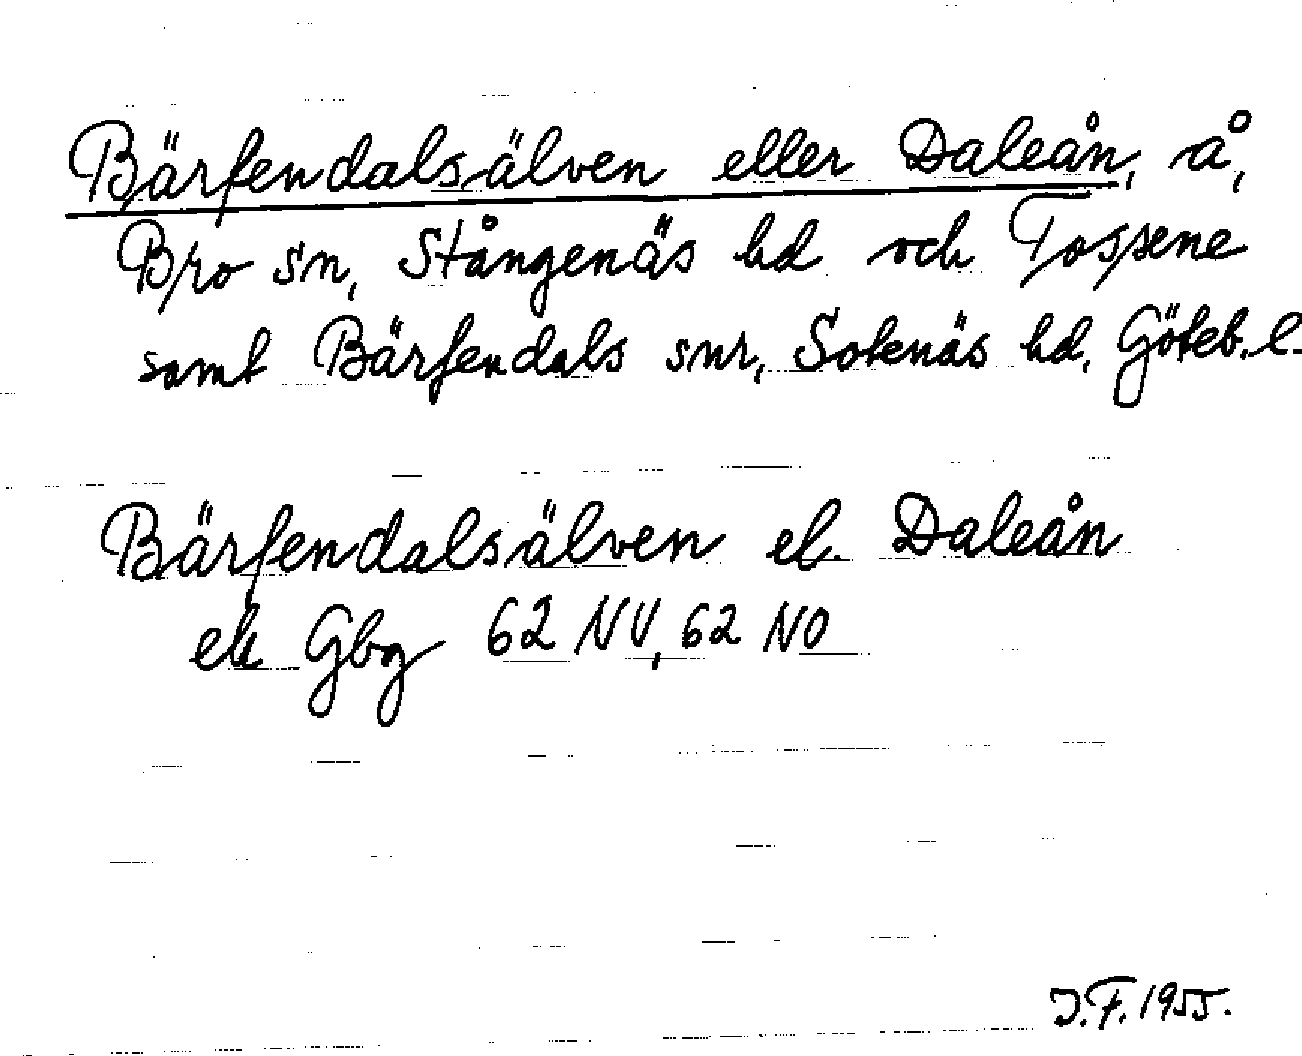 Bärfendalsälven eller Daleån, å,
Bro sn, Stångenäs hd och Tossene
samt Bärfendals snr, Sotenäs hd, Göteb. l.
Bärfendalsälven el. Daleån
ek Gbg 62 NV, 62 NO
J.F. 1955.